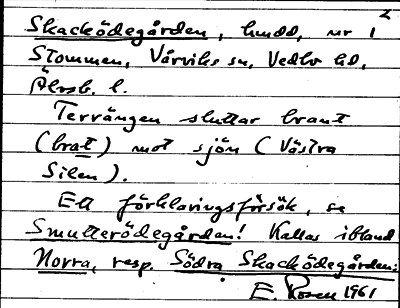 2
Skacködegården, hmdd, nr 1
Stommen, Vårviks sn, Vedbo hd,
Älvsb. l.
Terrängen sluttar brant
(brat) mot sjön (Västra
Silen).
Ett förklaringsförsök, se
Smulterödegården! Kallas ibland
Norra, resp. Södra Skacködegården.
E. Rosen 1961